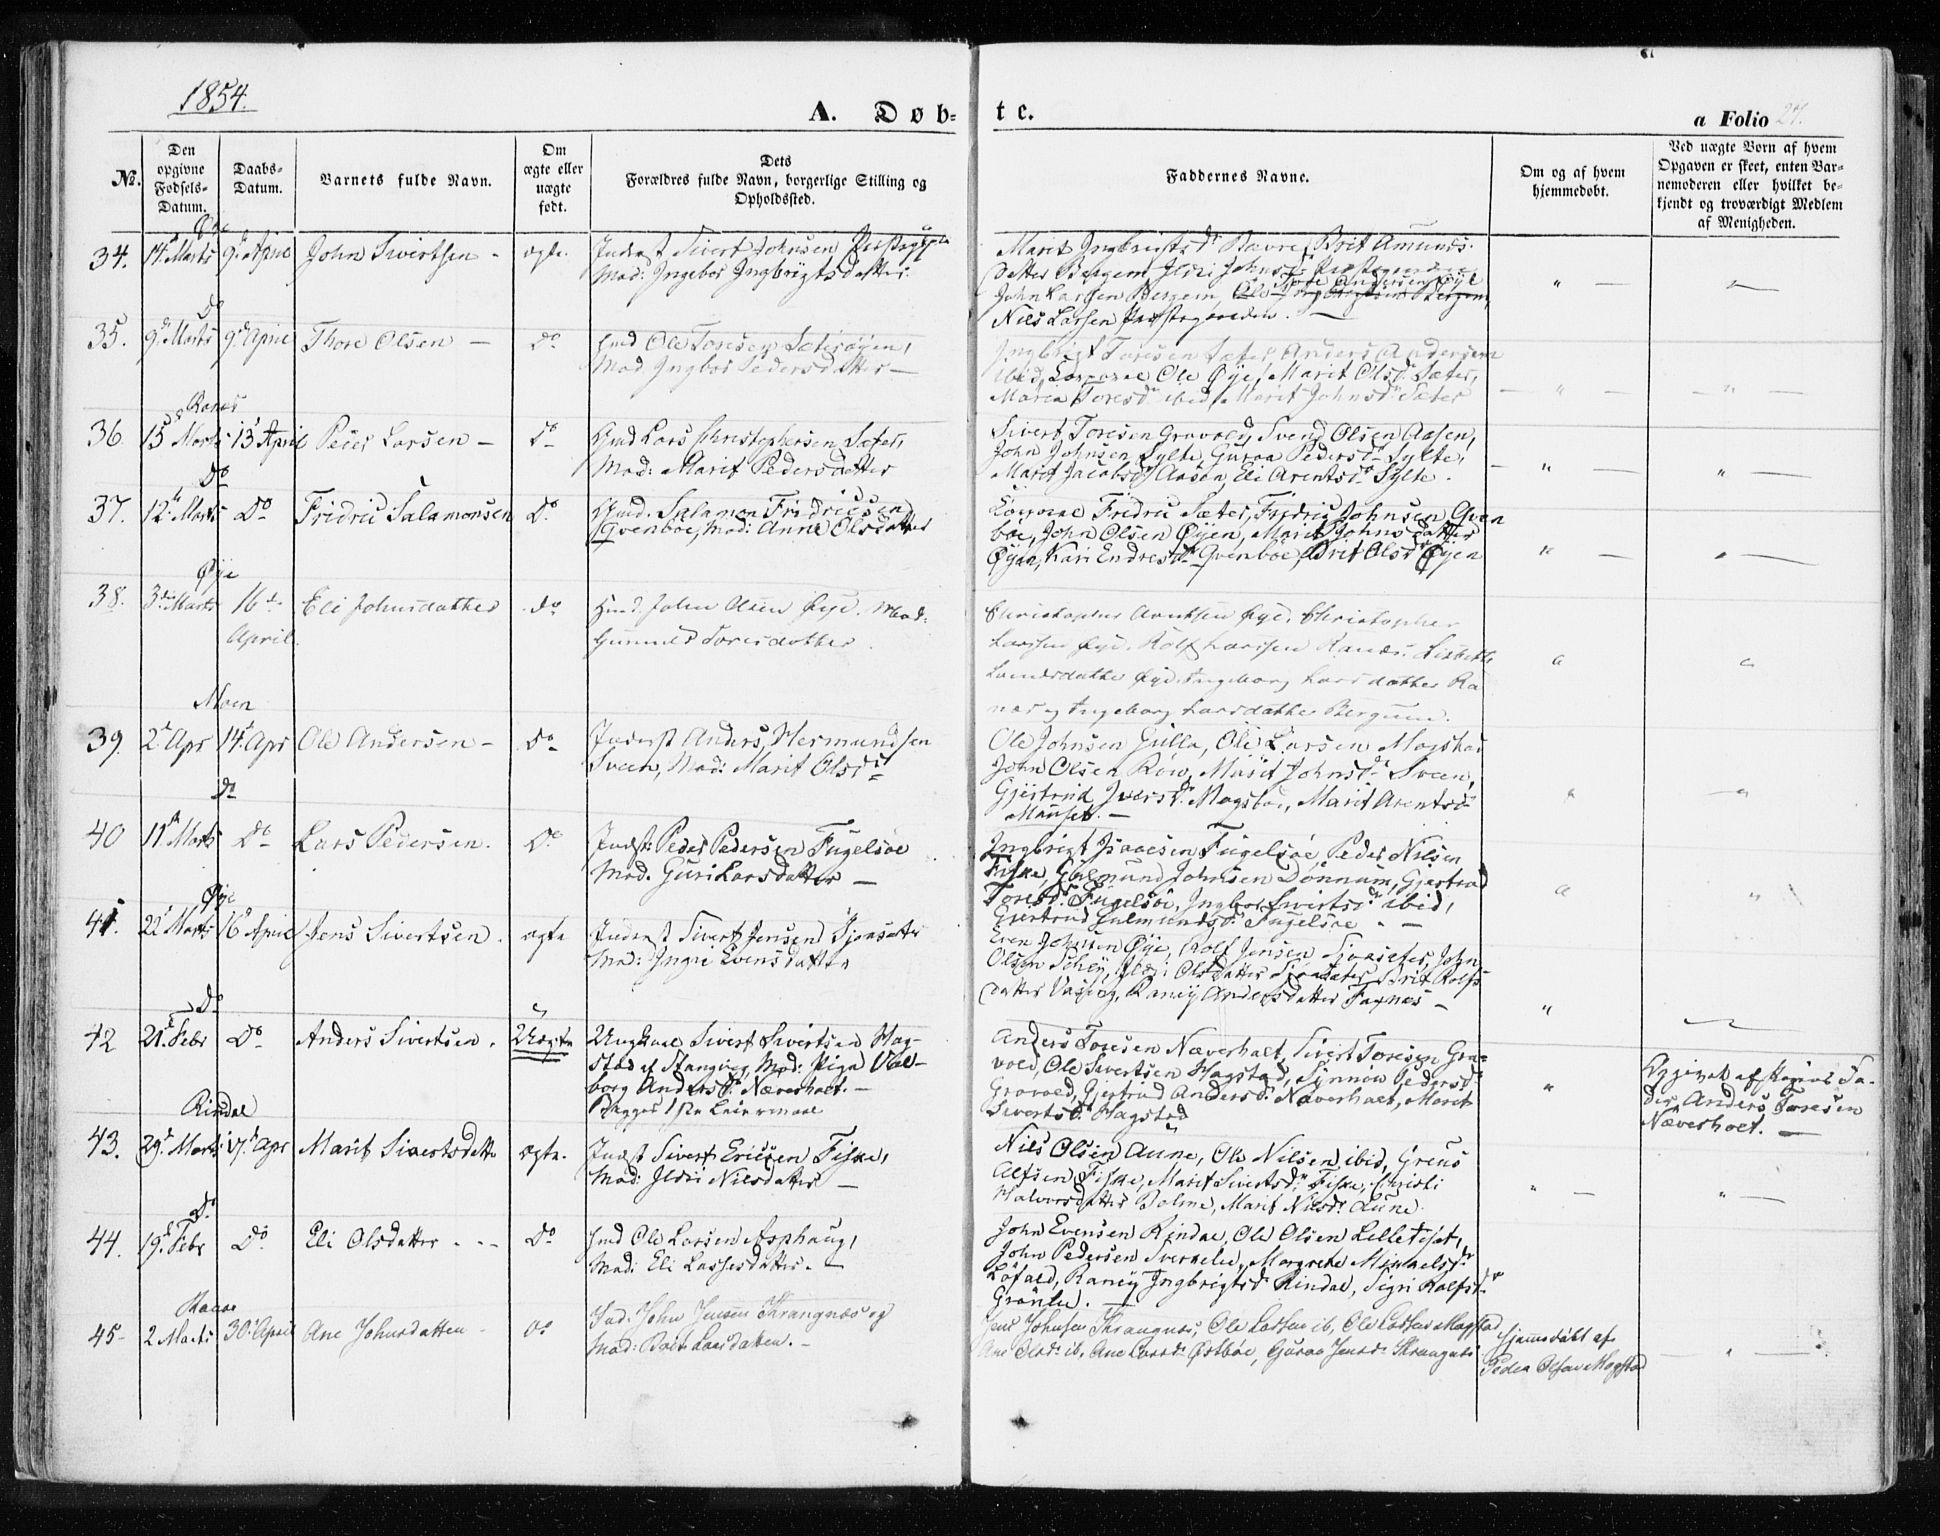 1854.
A. Døb-
te.
a Folio 27.
No.
Den opgivne Fødsels-Datum.
Daabs-Datum.
Barnets fulde Navn.
Om ægte eller uægte født.
Dets Forældres fulde Navn, borgerlige Stilling og Opholdssted.
Faddernes Navne.
Om og af hvem hjemmedøbt.
Ved uægte Børn af hvem Opgaven er skeet, enten Barnemoderen eller hvilket bekjendt og troværdigt Medlem af Menigheden.
Øye
34. 14d Marts 9d April John Sivertsen - ægte. Inderst Sivert Johnsen
Mod: Ingebor Ingbrigtsdatter.
Marit Ingbrigtsdr Bævre, Brit Amunds-
datter Bergem, Ildri Johnsdr
Tore Andersen Øye
John Larsen Bergem,
Nils Larsen Præstegaarden.
Do
35. 9d Marts 9d April Thore Olsen - Do Gmd Ole Toresen Sæterøyen,
Mod Ingbor Pedersdatter -
Ingbrigt Toresen Sæter, Anders Andersen
ibid, Corporal Ole Øye, Marit Olsdr Sæter,
Maria Toresdr ibid, Marit Johnsdr Sæter
Ranes
36. 15d Marts 13d April Peder Larsen - Do Gmd Lars Christophersen Sæter,
Mod: Marit Pedersdatter
Sivert Toresen Gravvold, Svend Olsen Aasen,
John Johnsen Sylte, Guroe Pedersdr Sylte,
Marit Jacobsdr Aasen, Eli Arentsdr Sylte.
Do
37. 12d Marts Do Fridric Salamonsen Do Gmd. Salamon Fridricsen
Qvenboe, Mod: Anne Olsdatter
Corporal Fridric Sæter, Fridric Johnsen Qven
boe, John Olsen Øyen, Marit Johnsdatter
Øyen, Kari Endresdr Qvenboe, Brit Olsdr Øyen
Øye
38. 3die Marts 16de April. Eli Johnsdatter do Hmd. John Olsen Øye. Mod:
Gunnild Toresdatter.
Christopher Arntsen Øye, Christopher
Larssen Øye. Rolf Larssen Ranæs. Lisbeth
Larsdatter Øye. Ingeborg Larsdatter Ra
næs og Ingeborg Larsdatter Bergum.
Moen
39. 2d Apr 14d Apr Ole Andersen - Do Inderst Anders Hermundsen
Sveen, Mod: Marit Olsdr
Ole Johnsen Gulla, Ole Larsen Magstad
John Olsen Røv, Marit Johnsdr Sveen,
Gjertrud Iversdr Mogstad, Marit Arentsdr
Mauset. -
Do
40 11d Marts Do Lars Pedersen. Do Indst: Peder Pedersen Fugelsøe
Mod. Guri Larsdatter -
Ingbrigt Isacsen Fugelsøe, Peder Nilsen
Fiske, Gulmund Johnsen Dønnum, Gjertrud
Toresdr Fugelsøe, Ingbor Sivertsdr ibid,
Gjertrud Gulmundsdr Fugelsøe. -
Øye
41. 22d Marts 16d April Jens Sivertsen. ægte Inderst Sivert Jensen Sjøasæter
Mod: Ingri Evensdatter
Even Johnsen Øye, Rolf Jensen Sjøasæter, John
Olsen Schey, Ildri Olsdatter Sjøasæter, Brit Rolfs
datter Vaseng, Raney Andersdatter Fagnæs -
Do
42 21d Febr Do Anders Sivertsen. Uægte Ungkarl Sivert Sivertsen Hag-
stad af Stangvig, Mod: Pige Val-
borg Andersdr Næverholt. -
Begges 1ste Leiermaal
Anders Toresen Næverholt, Sivert Toresen Gra-
vold, Ole Sivertsen Hagstad, Synnøv Pedersdr
Gravold, Gjertrud Andersdr Næverholt, Marit
Sivertsdr Hagstad
Opgivet af Pigens Fa-
der Anders Toresen
Næverholt. -
Rindal
43. 29d Marts 17d Apr Marit Sivertsdatter ægte. Indst Sivert Ericsen Fiske,
Mod: Ildri Nilsdatter -
Nils Olsen Aune, Ole Nilsen ibid, Greus
Alfsen Fiske, Marit Sivertsdr Fiske, Christi
Halvorsdatter Bolme, Marit Nilsdr Aune.
Do
44. 19d Febr Do Eli Olsdatter. - - Do Gmd Ole Larsen Asphaug,
Mod: Eli Lassesdatter. -
John Evensen Rindal, Ole Olsen Lilletejet,
John Pedersen Sverkeli, Margrete Mikkelsdr
Løfald, Raney Ingbrigtsdr Rindal, Sigri Rolfsdr
Grønli. -
Ranæs
45 - 2 Marts 30d April Ane Johnsdatter - do Ind. John Jensen Skrangnæs og
Mod: Brit Larsdatter. -
Jens Johnsen Skrangnæs, Ole Larsen ib, Ole Larsen Magstad
Ane Olsdr ib, Ane Larsdr Østbøe, Guroe Jensdr Skrangnæs
Hjemmedøbt af
Peder Olsen Magstad